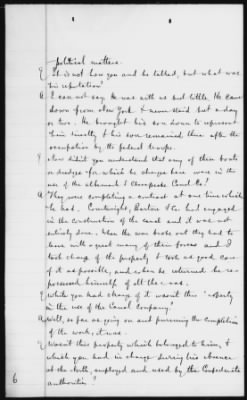 political matters.
Q It is not how you and he talked, but what was
his reputation?
A I can not say. He was with us but little. He came
down from New York & never staid but a day
or two. He brought his son down to represent
him mostly & his son remained there after the
occupation by the federal troops.
Q Now didn't you understand that any of these boats
or dredges for which he charges here were in the
use of the Albemarle & Chesapeake Canal Co?
A They were completing a contract at one time which
he had. Courtwright, Barton & Co. had engaged
in the construction of the canal and it was not
entirely done. When the war broke out they had to
leave with a great many of their forces and I
took charge of the property & took as good care
of it as possible, and when he returned he re-
possessed himself of all there was.
Q While you had charge of it wasn't this property
in the use of the Canal Company?
A Well, so far as going on and pursuing the completion
of the work, it was.
Q Wasn't this property which belonged to him, &
which you had in charge during his absence
at the North, employed and used by the Confederate
authorities?
6